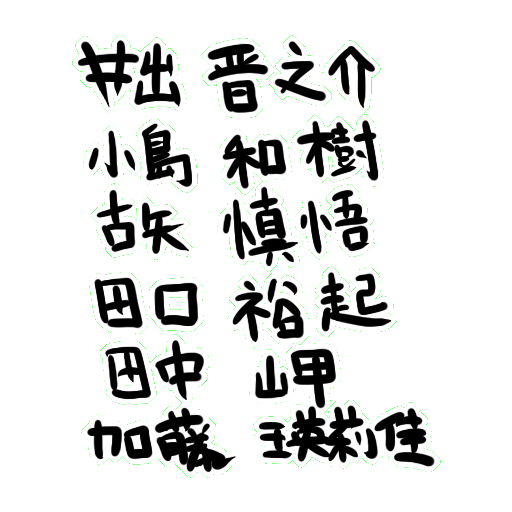 井出 晋之介
小島 和樹
古矢 慎悟
田口 裕起
田中 岬
加藤 瑛莉佳